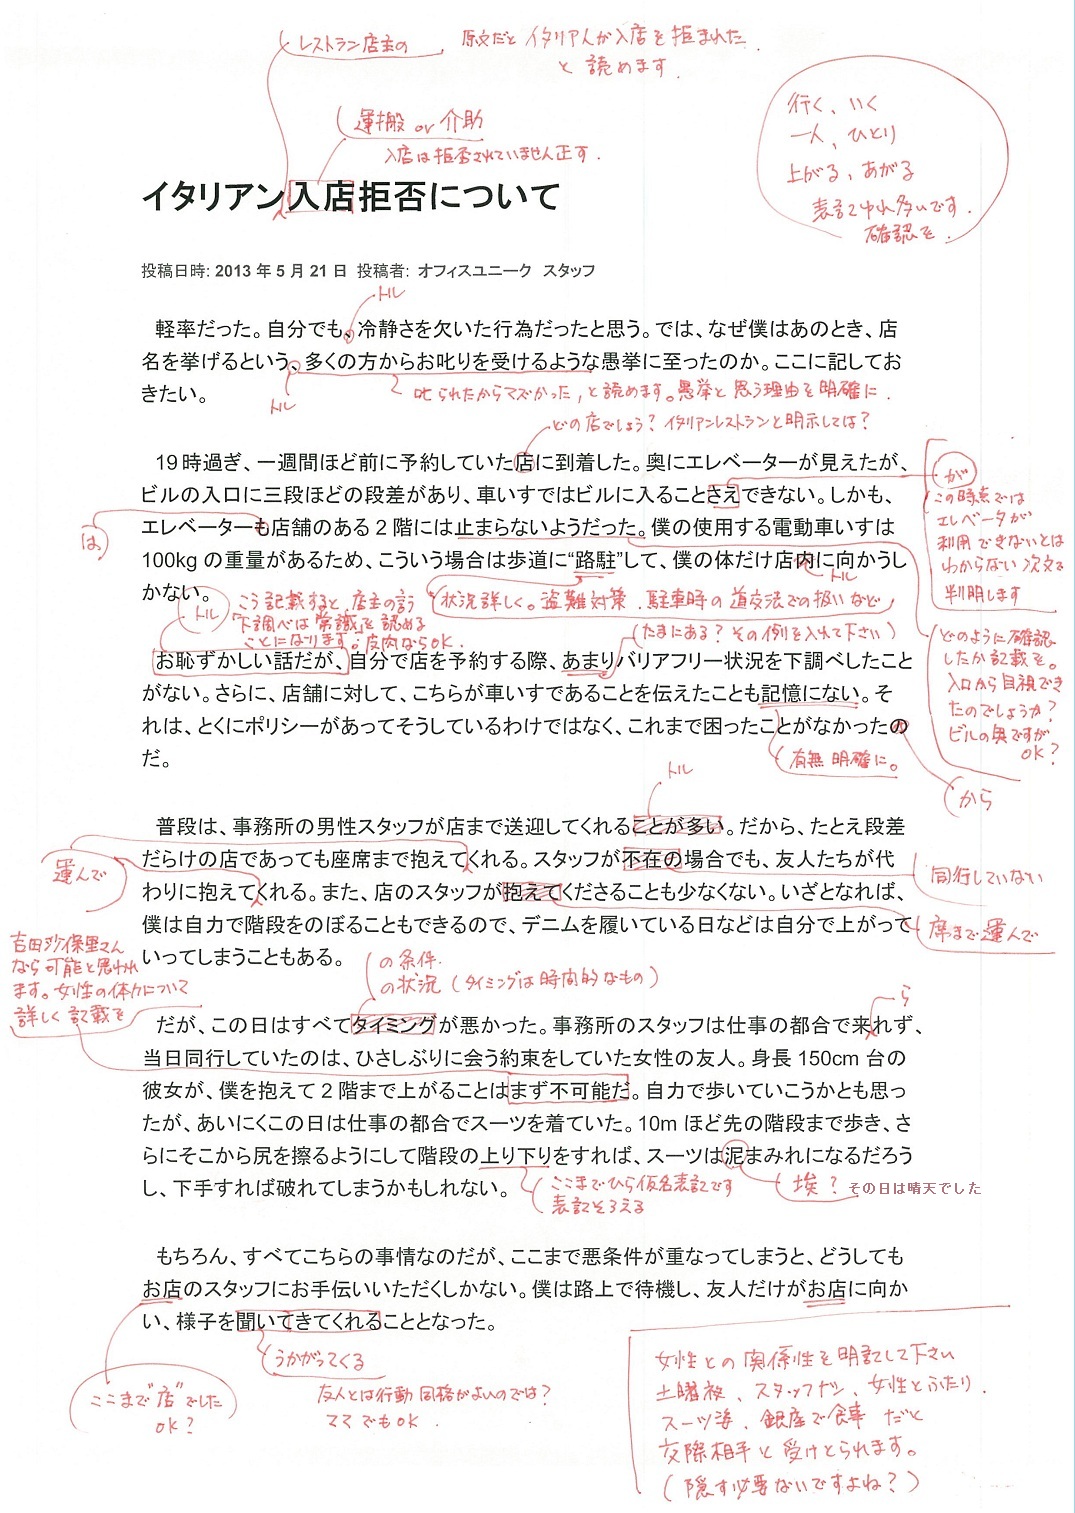 レストラン店主の
原文だと イタリア人が入店を拒まれた
と 読めます.
運搬 or 介助
入店は拒否されていません正す.
行く、いく
一人、ひとり
上がる、あがる
表記ゆれ多いです.
確認を.
イタリアン入店拒否について
投稿日時: 2013 年 5 月 21 日 投稿者: オフィスユニーク スタッフ
トル
軽率だった。自分でも、冷静さを欠いた行為だったと思う。では、なぜ僕はあのとき、店
名を挙げるという、多くの方からお叱りを受けるような愚挙に至ったのか。ここに記してお
きたい。
トル
叱られたからマズかった, と読めます。愚挙と思う理由を明確に.
どの店でしょう? イタリアンレストランと明示しては?
19 時過ぎ、一週間ほど前に予約していた店に到着した。奥にエレベーターが見えたが、
ビルの入口に三段ほどの段差があり、車いすではビルに入ることさえできない。しかも、
エレベーターも店舗のある 2 階には止まらないようだった。僕の使用する電動車いすは
100kg の重量があるため、こういう場合は歩道に“路駐”して、僕の体だけ店内に向かうし
かない。
は
が
この時点では
エレベータが
利用できないとは
わからない 次文で
判明します
トル
トル
こう記載すると、店主の言う
「下調べは常識」を認める
ことになります。皮肉ならOK.
状況詳しく。盗難対策、駐車時の道交法での扱いなど
(たまにある? その例を入れて下さい)
どのように確認
したか記載を。
入口から目視でき
たのでしょうか?
ビルの奥ですが
OK?
お恥ずかしい話だが、自分で店を予約する際、あまりバリアフリー状況を下調べしたこと
がない。さらに、店舗に対して、こちらが車いすであることを伝えたことも記憶にない。そ
れは、とくにポリシーがあってそうしているわけではなく、これまで困ったことがなかったの
だ。
有無 明確に。
から
トル
普段は、事務所の男性スタッフが店まで送迎してくれることが多い。だから、たとえ段差
だらけの店であっても座席まで抱えてくれる。スタッフが不在の場合でも、友人たちが代
わりに抱えてくれる。また、店のスタッフが抱えてくださることも少なくない。いざとなれば、
僕は自力で階段をのぼることもできるので、デニムを履いている日などは自分で上がって
いってしまうこともある。
運んで
同行していない
席まで運んで
吉田沙保里さん
なら可能と思われ
ます。女性の体力について
詳しく記載を
の条件.
の状況 (タイミングは時間的なもの)
ら
だが、この日はすべてタイミングが悪かった。事務所のスタッフは仕事の都合で来れず、
当日同行していたのは、ひさしぶりに会う約束をしていた女性の友人。身長 150cm 台の
彼女が、僕を抱えて 2 階まで上がることはまず不可能だ。自力で歩いていこうかとも思っ
たが、あいにくこの日は仕事の都合でスーツを着ていた。10m ほど先の階段まで歩き、さ
らにそこから尻を擦るようにして階段の上り下りをすれば、スーツは泥まみれになるだろう
し、下手すれば破れてしまうかもしれない。
ここまでひら仮名表記です
表記そろえる
埃? その日は晴天でした
もちろん、すべてこちらの事情なのだが、ここまで悪条件が重なってしまうと、どうしても
お店のスタッフにお手伝いいただくしかない。僕は路上で待機し、友人だけがお店に向か
い、様子を聞いてきてくれることとなった。
うかがってくる
ここまで"店"でした
OK?
友人とは行動同格がよいのでは?
ママ でもOK.
女性との関係性を明記して下さい
土曜夜、スタッフナシ、女性とふたり.
スーツ姿、銀座で食事 だと
交際相手と受けとられます。
(隠す必要ないですよね?)